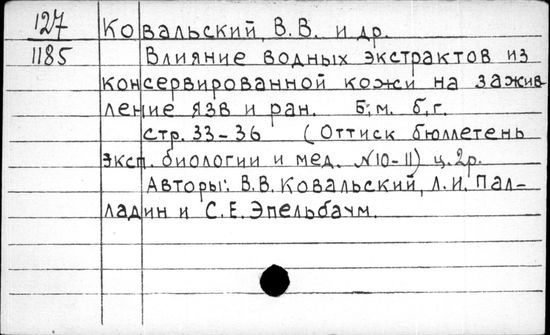 127 Ковальский, В.В. и др.
1185 Влияние водных экстрактов из
консервированной кожи на зажив-
ление язв и ран. Б.м. б.г.
стр. 33-36 (Оттиск бюллетень
эксп. биологии и мед. N10-11) ц. 2р.
Авторы: В.В. Ковальский, Л.И. Пал-
ладин и С.Е. Эпельбаум.